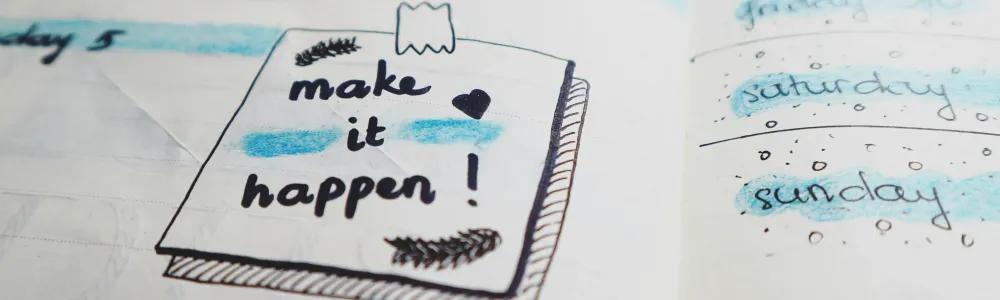 day 5
make
it
happen !
friday
saturday
sunday